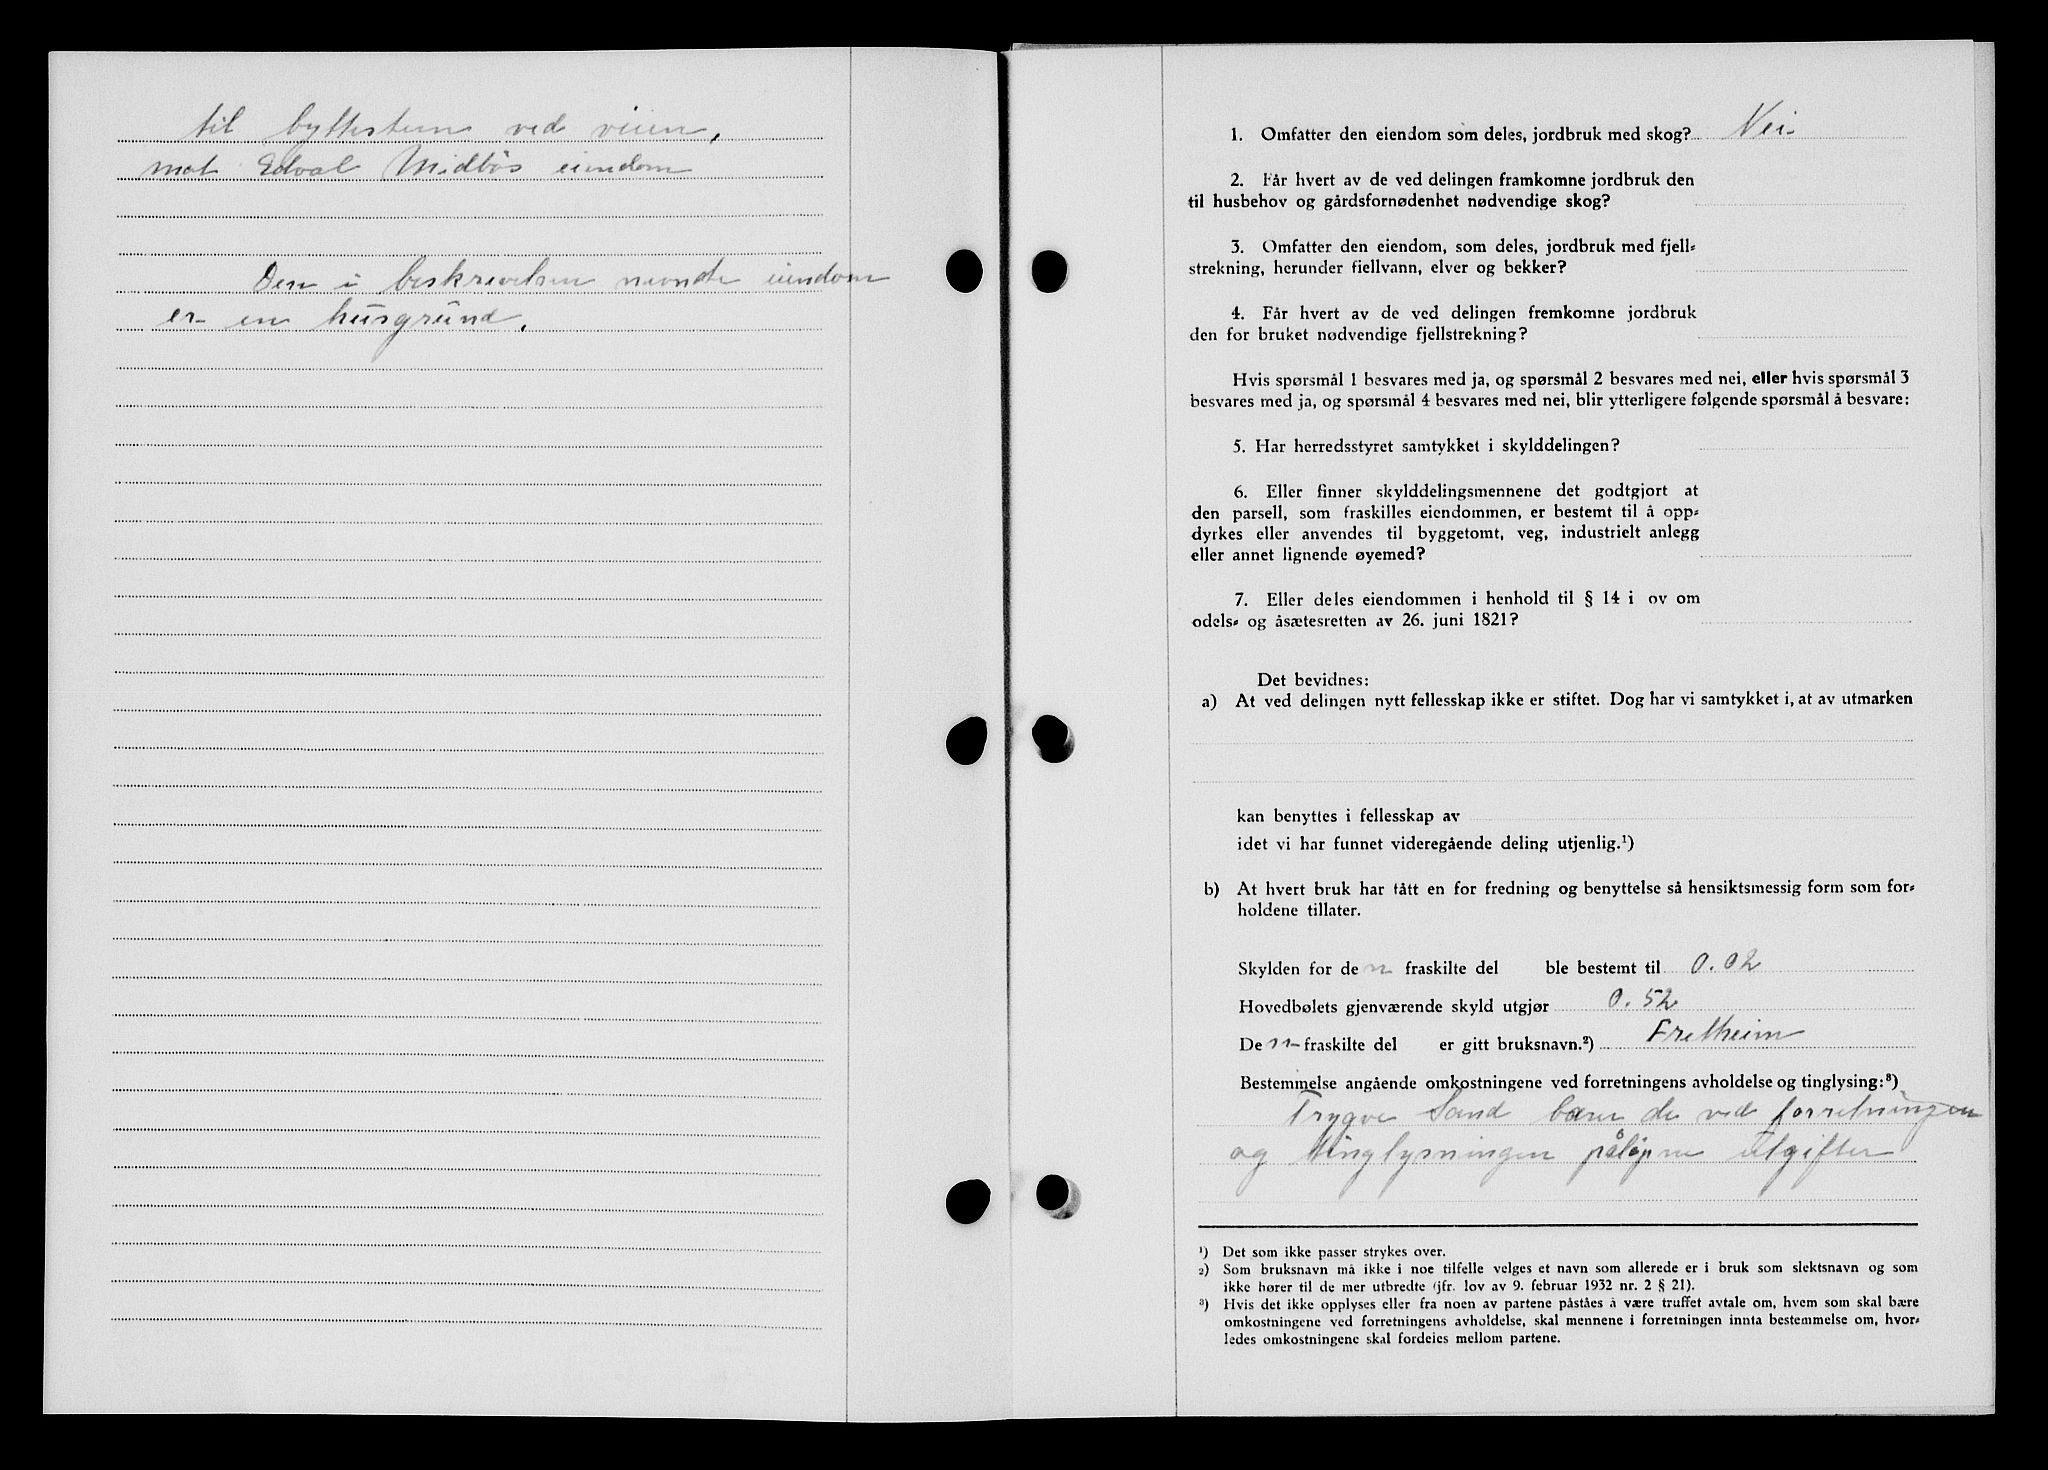 til byttestein ved veien,
mot Edval Midbös eiendom
Den i beskrivelsen nevnte eiendom
er en husgrunn.
1. Omfatter den eiendom som deles, jordbruk med skog? Nei
2. Får hvert av de ved delingen framkomne jordbruk den
til husbehov og gårdsfornødenhet nødvendige skog?
3. Omfatter den eiendom, som deles, jordbruk med fjell-
strekning, herunder fjellvann, elver og bekker?
4. Får hvert av de ved delingen fremkomne jordbruk
den for bruket nødvendige fjellstrekning?
Hvis spørsmål 1 besvares med ja, og spørsmål 2 besvares med nei, eller hvis spørsmål 3
besvares med ja, og spørsmål 4 besvares med nei, blir ytterligere følgende spørsmål å besvare:
5. Har herredsstyret samtykket i skylddelingen?
6. Eller finner skylddelingsmennene det godtgjort at
den parsell, som fraskilles eiendommen, er bestemt til å opp-
dyrkes eller anvendes til byggetomt, veg, industrielt anlegg
eller annet lignende øyemed?
7. Eller deles eiendommen i henhold til § 14 i ov om
odels- og åsætesretten av 26. juni 1821?
Det bevidnes:
a) At ved delingen nytt fellesskap ikke er stiftet. Dog har vi samtykket i, at av utmarken
kan benyttes i fellesskap av
idet vi har funnet videregående deling utjenlig.¹)
b) At hvert bruk har fått en for fredning og benyttelse så hensiktsmessig form som for-
holdene tillater.
Skylden for den fraskilte del ble bestemt til 0.02
Hovedbølets gjenværende skyld utgjør 0.52
Den fraskilte del er gitt bruksnavn.²) Fretheim
Bestemmelse angående omkostningene ved forretningens avholdelse og tinglysing:³)
Trygve Sand bærer de ved forretningen
og tinglysningen påløpne utgifter
¹) Det som ikke passer strykes over.
²) Som bruksnavn må ikke i noe tilfelle velges et navn som allerede er i bruk som slektsnavn og som
ikke hører til de mer utbredte (jfr. lov av 9. februar 1932 nr. 2 § 21).
³) Hvis det ikke opplyses eller fra noen av partene påståes å være truffet avtale om, hvem som skal bære
omkostningene ved forretningens avholdelse, skal mennene i forretningen innta bestemmelse om, hvor-
ledes omkostningene skal fordeles mellom partene.